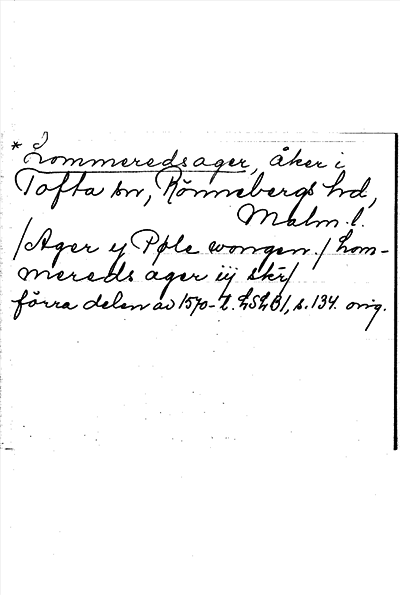 * Lommeredsager, åker i
Tofta sn, Rönnebergs hd,
Malm. l.
/Ager ij Pøle wongen./Lom-
mereds ager iij skr/
förra delen av 1570-t. LSLB1, s. 134. orig.